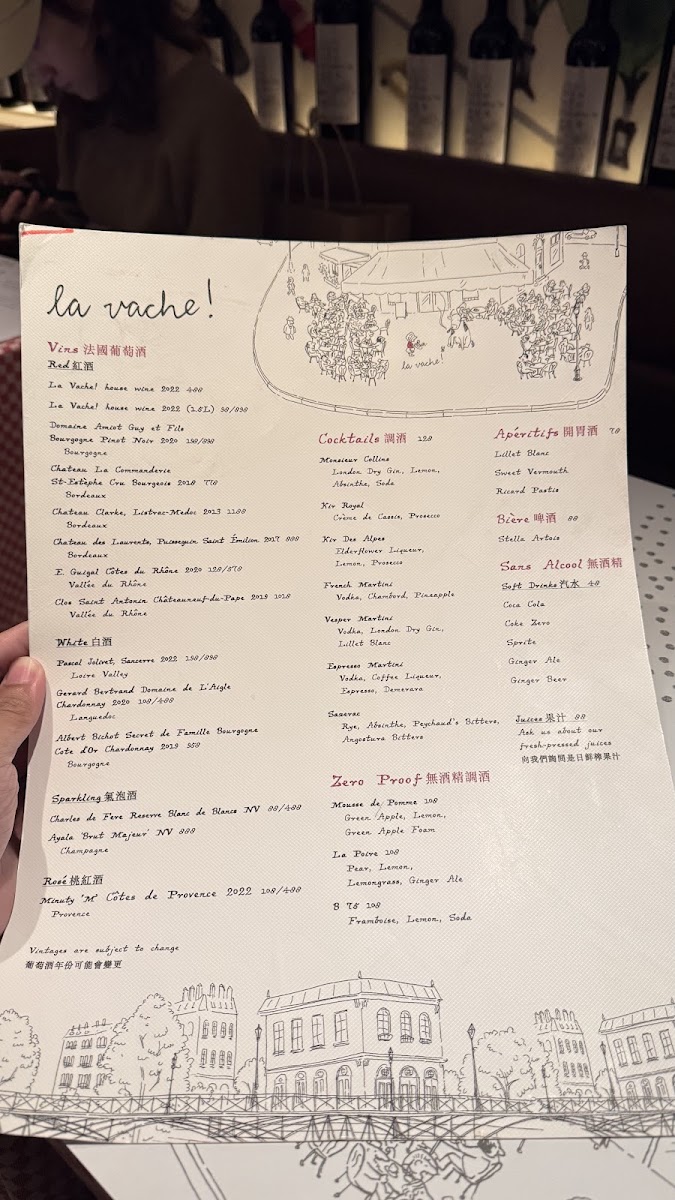 la vache!
la vache!
Vins 法國葡萄酒
Red 紅酒
La Vache! house wine 2022 488
La Vache! house wine 2022 (1.5L)
Domaine Amiot Guy et Fils
Bourgogne Pinot Noir 2020
Bourgogne
Chateau La Commanderie
St-Estèphe Cru Bourgeois 2018
Bordeaux
Chateau Clarke, Listrac-Medoc 2013
Bordeaux
Chateau des Laurents, Puisseguin Saint Émilion 2017
Bordeaux
E. Guigal Côtes du Rhône 2020
Vallée du Rhône
Clos Saint Antonin Châteauneuf-du-Pape 2019
Vallée du Rhône
White 白酒
Pascal Jolivet, Sancerre 2022
Loire Valley
Gerard Bertrand Domaine de L'Aigle
Chardonnay 2020
Languedoc
Albert Bichot Secret de Famille Bourgogne
Cote d'Or Chardonnay 2019
Bourgogne
Sparkling 氣泡酒
Charles de Fere Reserve Blanc de Blancs NV 88/488
Ayala 'Brut Majeur' NV 888
Champagne
Rosé 桃紅酒
Minuty 'M' Côtes de Provence 2022 108/488
Provence
Vintages are subject to change
葡萄酒年份可能會變更
Cocktails 調酒 128
Monsieur Collins
London Dry Gin, Lemon,
Absinthe, Soda
Kir Royal
Crème de Cassis, Prosecco
Kir Des Alpes
Elderflower Liqueur,
Lemon, Prosecco
French Martini
Vodka, Chambord, Pineapple
Vesper Martini
Vodka, London Dry Gin,
Lillet Blanc
Espresso Martini
Vodka, Coffee Liqueur,
Espresso, Demerara
Sazerac
Rye, Absinthe, Peychaud's Bitters,
Angostura Bitters
Zero Proof 無酒精調酒
Mousse de Pomme 108
Green Apple, Lemon,
Green Apple Foam
La Poire 108
Pear, Lemon,
Lemongrass, Ginger Ale
S 75 108
Framboise, Lemon, Soda
Apéritifs 開胃酒 78
Lillet Blanc
Sweet Vermouth
Ricard Pastis
Bière 啤酒 88
Stella Artois
Sans Alcool 無酒精
Soft Drinks 汽水 48
Coca Cola
Coke Zero
Sprite
Ginger Ale
Ginger Beer
Juices 果汁 88
Ask us about our
fresh-pressed juices
向我們詢問是日鮮榨果汁